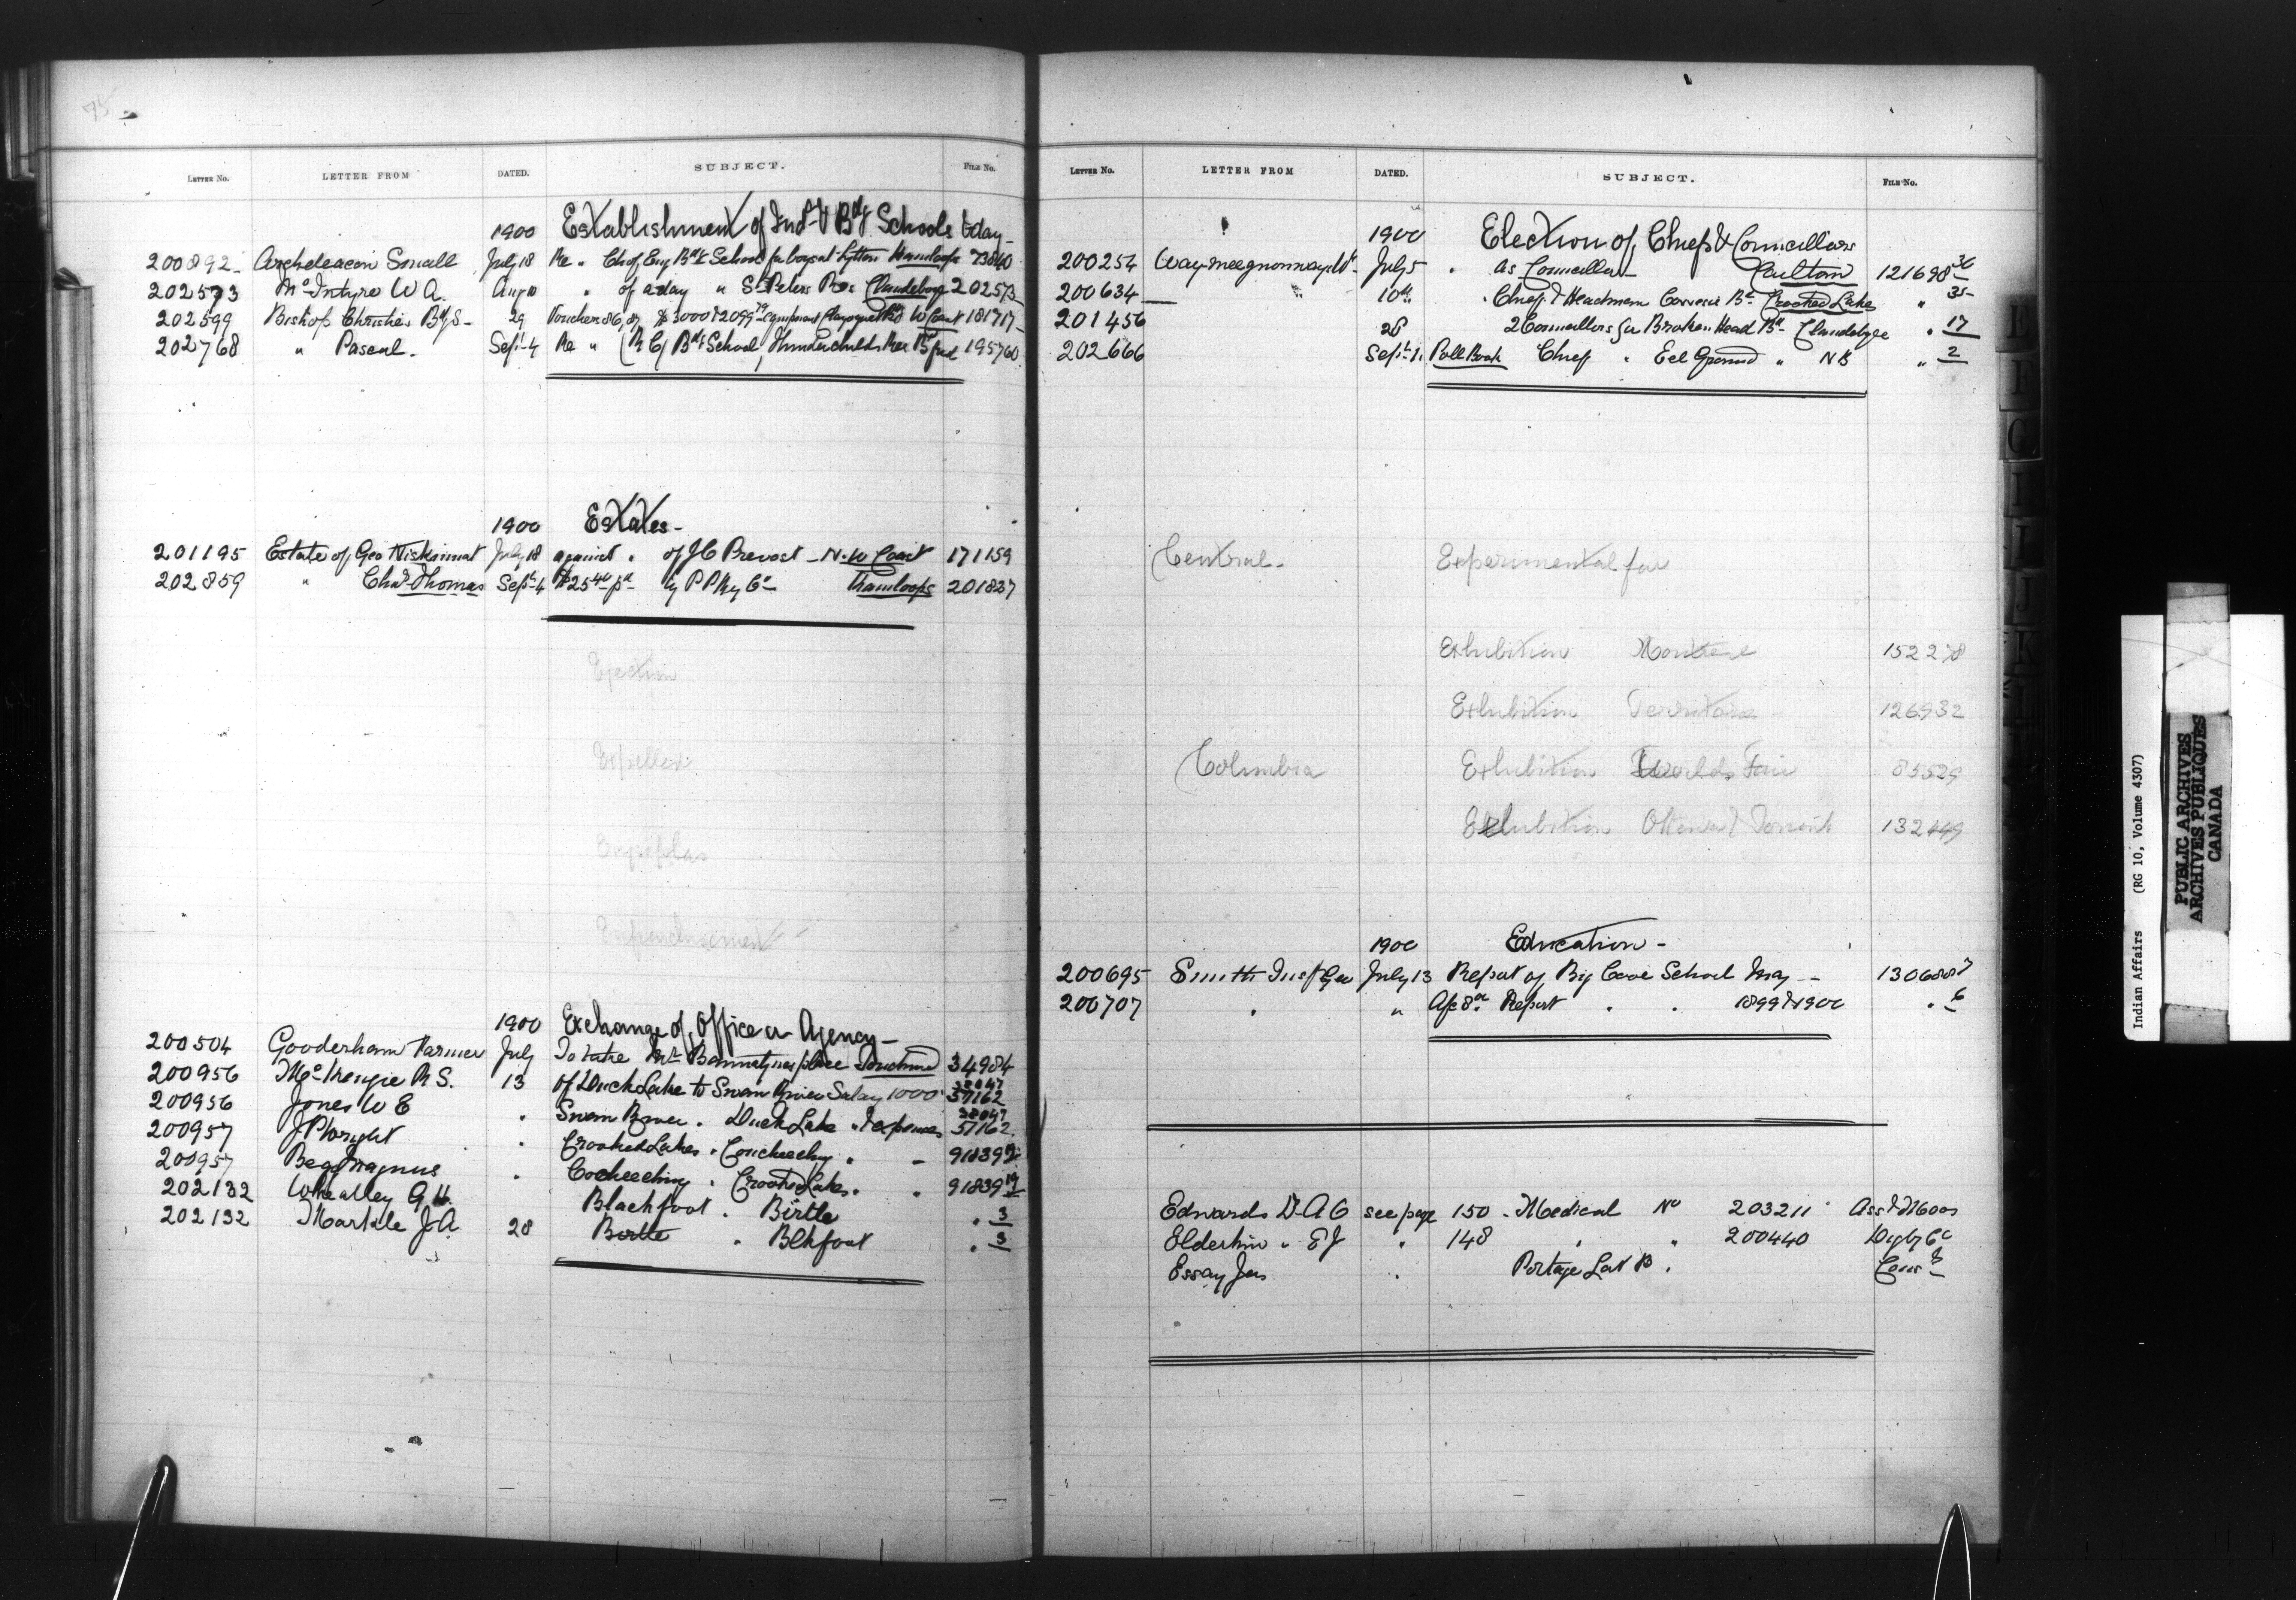 95
LETTER No. LETTER FROM DATED. SUBJECT. FILE No.
1900 Establishment of Ind & Bdg Schools & day
200892 Archdeacon Small July 18 Re " Ch of Eng Bdg School for boys at Lytton Kamloops 73840
202573 McIntyre W A. Aug 10 " of a day " St Peters Res Clandeboy 202573
202599 Bishop Christie 29 Vouchers 86, 87 $3000 & 2099 W Coast 181717
202768 " Pascal. Sept 4 Re " (R C) Bdg School, Thunderchilds Res 195760
1900 Estates
201195 Estate of Geo July 18 against " of J C Prevost N. W Coast 171159
202859 " Chas Thomas Sept 4 $25 pd by P P Ry Co Kamloops 201837
Ejection
Expelled
Erysipelas
Enfranchisement
1900 Exchange of Office or Agency
200504 Gooderham Farmer July To take Mr place Touchwood 34984
200956 McKenzie R S. 13 of Duck Lake to Swan River Salary 1000 38047 57162
200956 Jones W E " Swan River " Duck Lake " & expenses 38047 57162
200957 J P Wright " Crooked Lakes " Coucheechy " 91839
200957 Begg Magnus " Cocheeching " Crooked Lakes " " 91839 19
202132 Wheatley G H. Blackfoot " Birtle " 3
202132 Markle J A. 28 Birtle " Blkfoot " 3
LETTER No. LETTER FROM DATED. SUBJECT. FILE No.
1900 Election of Chiefs & Councillors
200254 July 5 " as Councillor Caulton 121698 36
200634 " 10th " Chief & Headmen Cowesis Bd Crooked Lake " 35
201456 28 2 Councillors for Broken Head Bd Clandeboye " 17
202666 Sept 1 Poll Book Chief " Eel Ground " N B " 2
Central Experimental far
Exhibition 152278
Exhibition 126932
Columbia Exhibition Worlds Fair 85529
Exhibition Ottawa & Toronto 132449
1900 Education
200695 Smith Inspt Geo July 13 Report of Big Cove School May 130688 7
200707 " " Report " " 1899 & 1900 " 6
Edwards Dr A C see page 150 Medical No 203211 Asst Moos
Elderkin " E J " 148 " " 200440 Digby Co
Essay Jas " Portage Lat R "
E
F
G
I
J
K
Indian Affairs (RG 10, Volume 4307)
PUBLIC ARCHIVES
ARCHIVES PUBLIQUES
CANADA